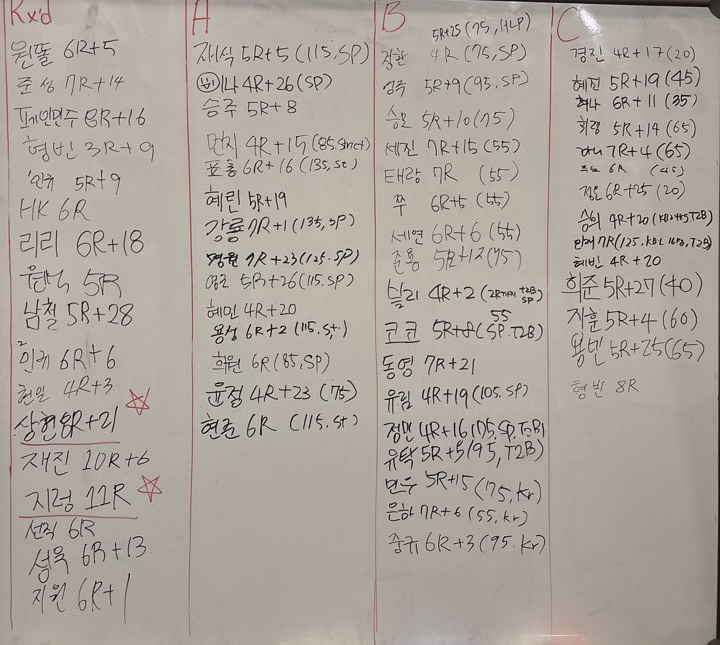 Rx'd
원똘 6R+5
준성 7R+14
프레인민수 8R+16
형빈 3R+9
'인규 5R+9
HK 6R
리리 6R+18
원석 5R
남철 5R+28
²인규 6R+6
천일 4R+3
상현 8R+21
재진 10R+6
지렁 11R
선직 6R
성욱 6R+13
지원 6R+1
A
재식 5R+5 (115, SP)
나 4R+26 (SP)
승주 5R+8
먼지 4R+15 (85.Strict)
표통 6R+16 (135, St)
혜린 5R+19
강룡 7R+1 (135, SP)
7R+23 (125.SP)
영조 5R+26 (115.SP)
혜민 4R+20
용성 6R+2 (115.St.)
희원 6R (85, SP)
윤정 4R+23 (75)
현준 6R (115.St)
B
5R+25 (75, HLP)
장환 4R (75, SP)
5R+9 (93, SP)
승모 5R+10 (75)
세진 7R+15 (55)
태량 7R (55)
쭈 6R+5 (55)
세연 6R+6 (55)
준룡 5R+12 (75)
빌리 4R+2 (2R까지 T2B SP)
55
코코 5R+8 (SP.T2B)
동영 7R+21
유림 4R+19 (105.SP)
정민 4R+16 (75.SP.T2B)
유탁 5R+5 (95, T2B)
민수 5R+15 (75, Kr)
은하 7R+6 (55, Kr)
중규 6R+3 (95.Kr)
C
경진 4R+17 (20)
혜진 5R+19 (45)
혜나 6R+11 (35)
회경 5R+14 (65)
7R+4 (65)
6R (45)
정호 6R+25 (20)
승희 4R+20
7R (125, KB 16kg, T2B)
혜빈 4R+20
희준 5R+27 (40)
지훈 5R+4 (60)
용빈 5R+25 (65)
형빈 8R